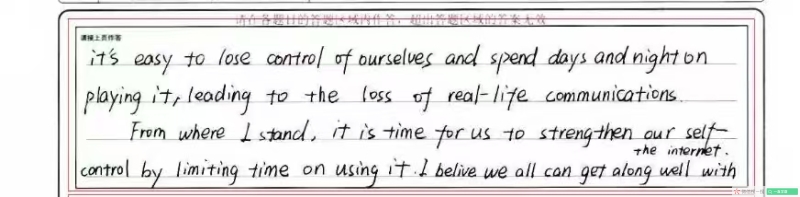 请在各题目的答题区域内作答，超出答题区域的答案无效
请接上页作答
it's easy to lose control of ourselves and spend days and night on
playing it, leading to the loss of real-life communications.
From where I stand, it is time for us to strengthen our self-
control by limiting time on using it. I belive we all can get along well with
the internet.